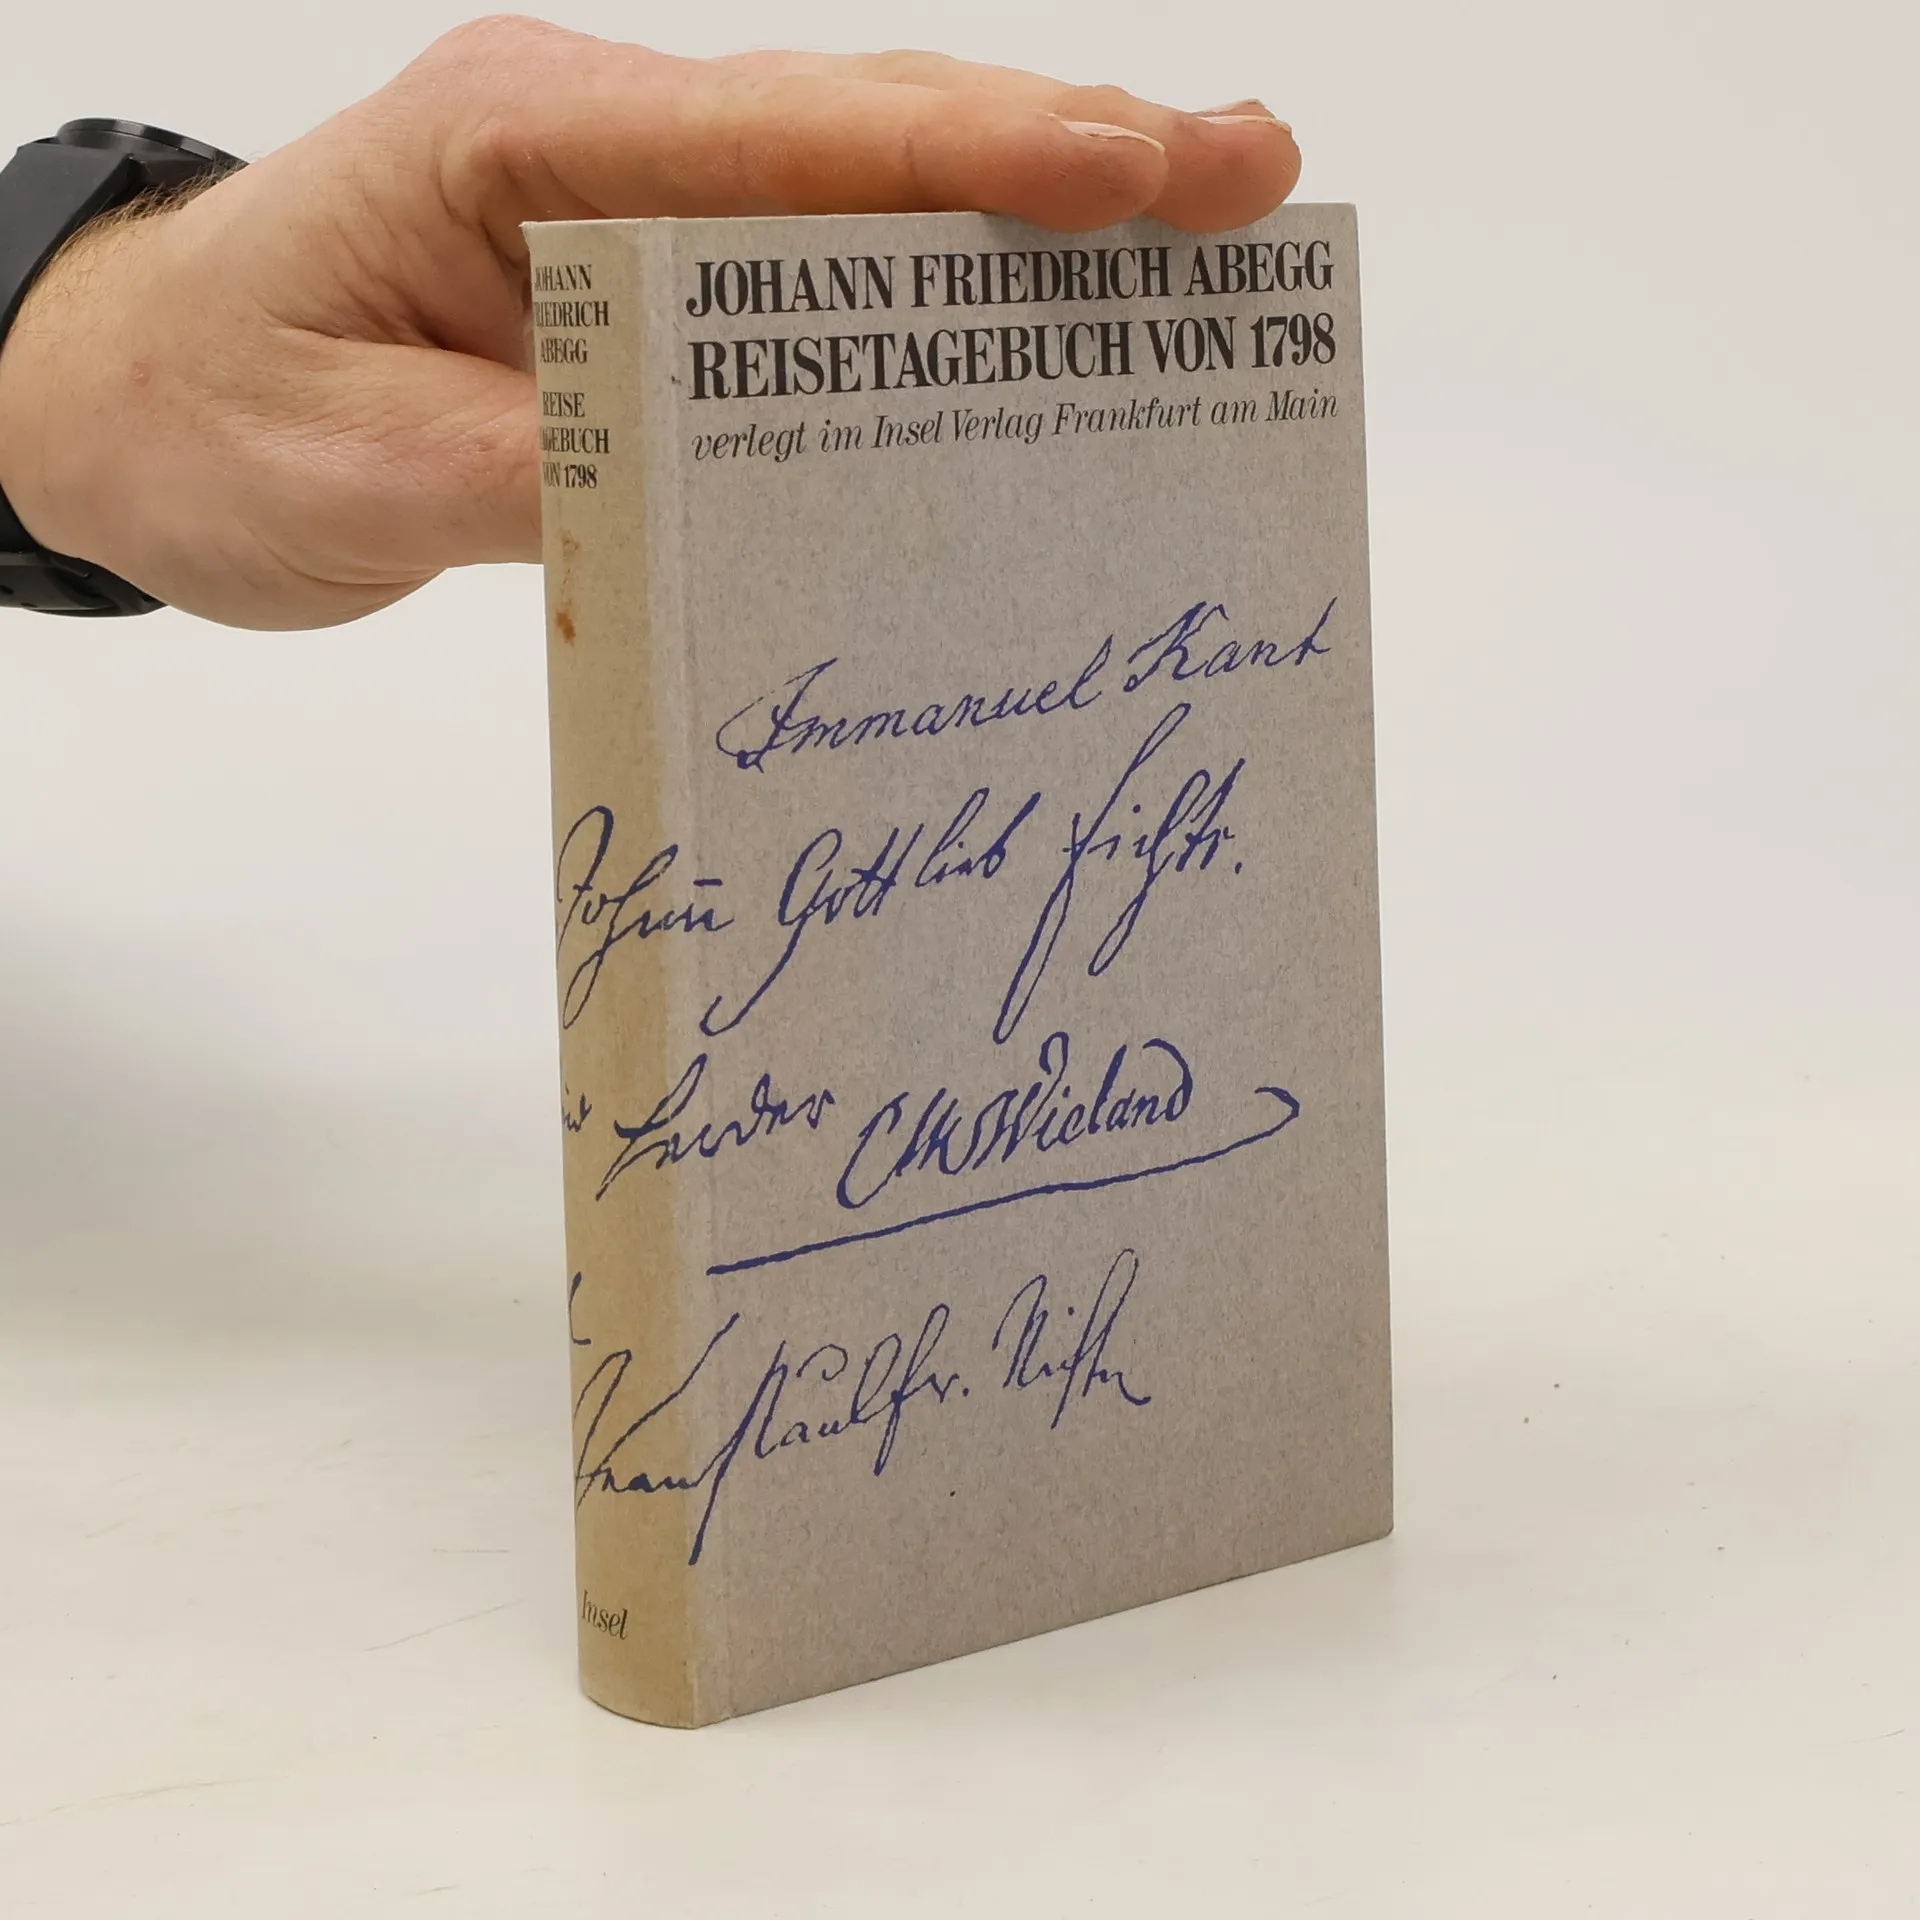 JOHANN
FRIEDRICH
ABEGG
REISE
TAGEBUCH
VON 1798
Insel
JOHANN FRIEDRICH ABEGG
REISETAGEBUCH VON 1798
verlegt im Insel Verlag Frankfurt am Main
Immanuel Kant
Johan̅ Gottlieb Fichte.
Herder CMWieland
Jean Paul Fr. Richter